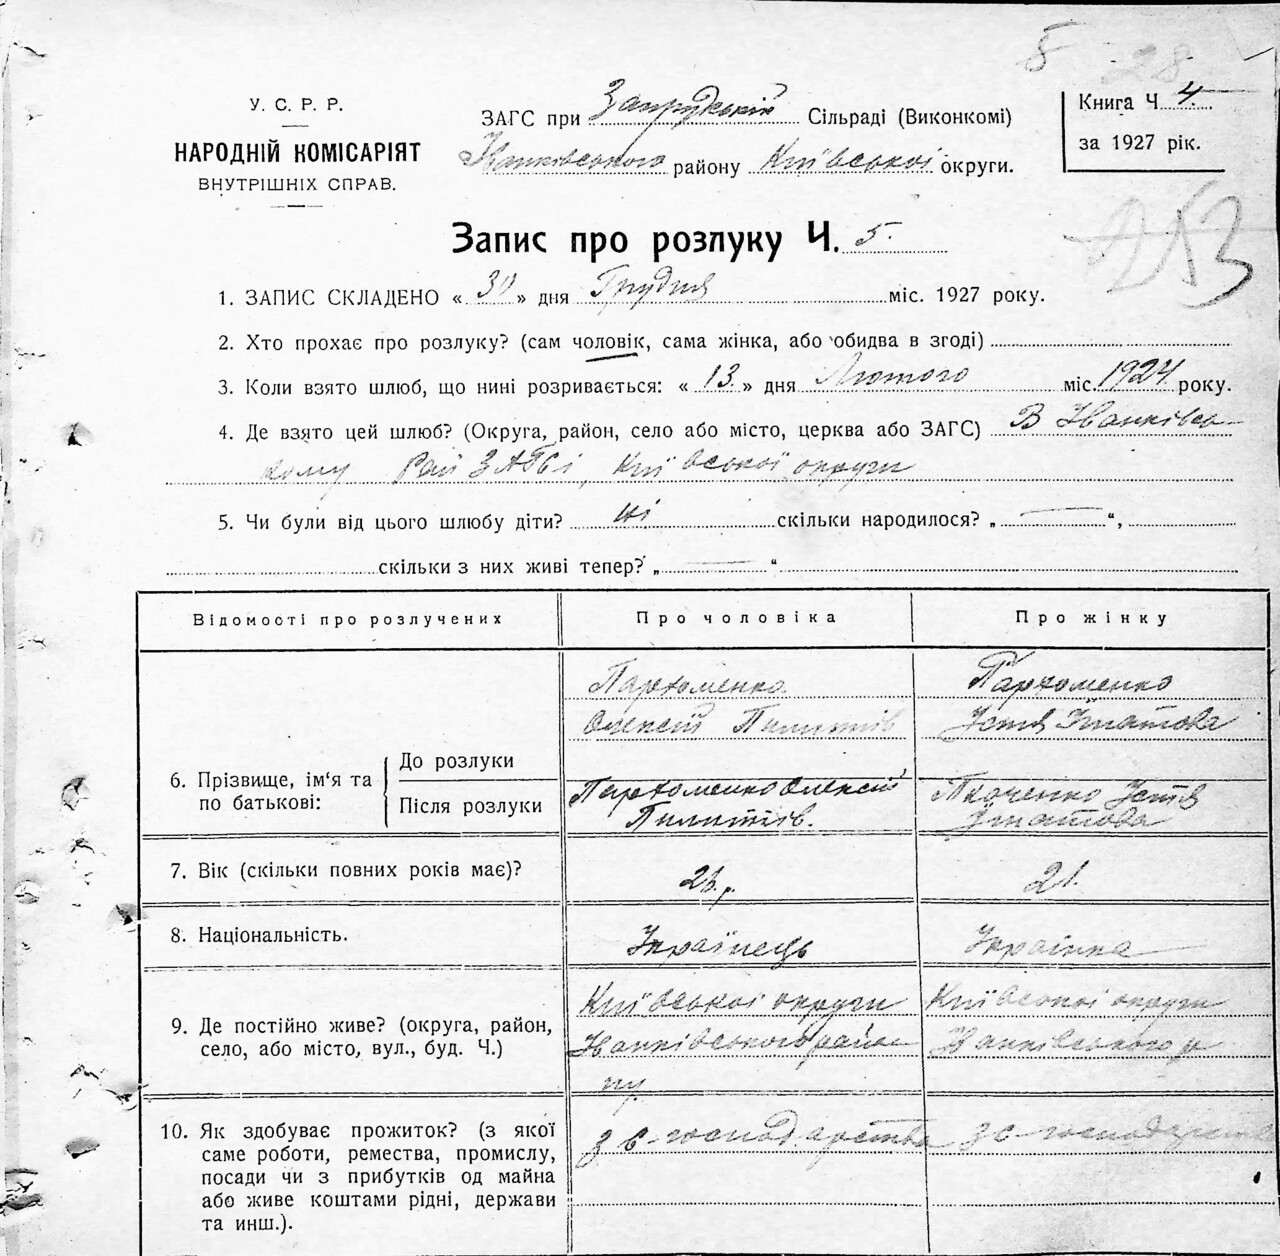 5 28
У. С. Р. Р.
НАРОДНІЙ КОМІСАРІЯТ
ВНУТРІШНІХ СПРАВ.
ЗАГС при Запрудській Сільраді (Виконкомі)
Іванківського району Київської округи.
Книга Ч. 4
за 1927 рік.
253
Запис про розлуку Ч. 5.
1. ЗАПИС СКЛАДЕНО « 30 » дня Грудня міс. 1927 року.
2. Хто прохає про розлуку? (сам чоловік, сама жінка, або обидва в згоді)
3. Коли взято шлюб, що нині розривається: « 13 » дня Лютого міс. 1924 року.
4. Де взято цей шлюб? (Округа, район, село або місто, церква або ЗАГС) В Іванківсь-
кому Рай ЗАГСі, Київської округи
5. Чи були від цього шлюбу діти? ні скільки народилося? „ — “,
скільки з них живі тепер? „ — “
Відомості про розлучених Про чоловіка Про жінку
Пархоменко Пархоменко
Олексій Пилипів Устя Ігнатова
6. Прізвище, ім‘я та по батькові:
До розлуки
Після розлуки
Пархоменко Олексій Ткаченко Устя
Пилипів. Ігнатова
7. Вік (скільки повних років має)? 21.
8. Національність. Українець Українка
9. Де постійно живе? (округа, район,
село, або місто, вул., буд. Ч.)
Київської округи Київської округи
Іванківського райо- Іванківського р
ну
10. Як здобуває прожиток? (з якої
саме роботи, ремества, промислу,
посади чи з прибутків од майна
або живе коштами рідні, держави
та инш.).
з с-господарства з с-господарства